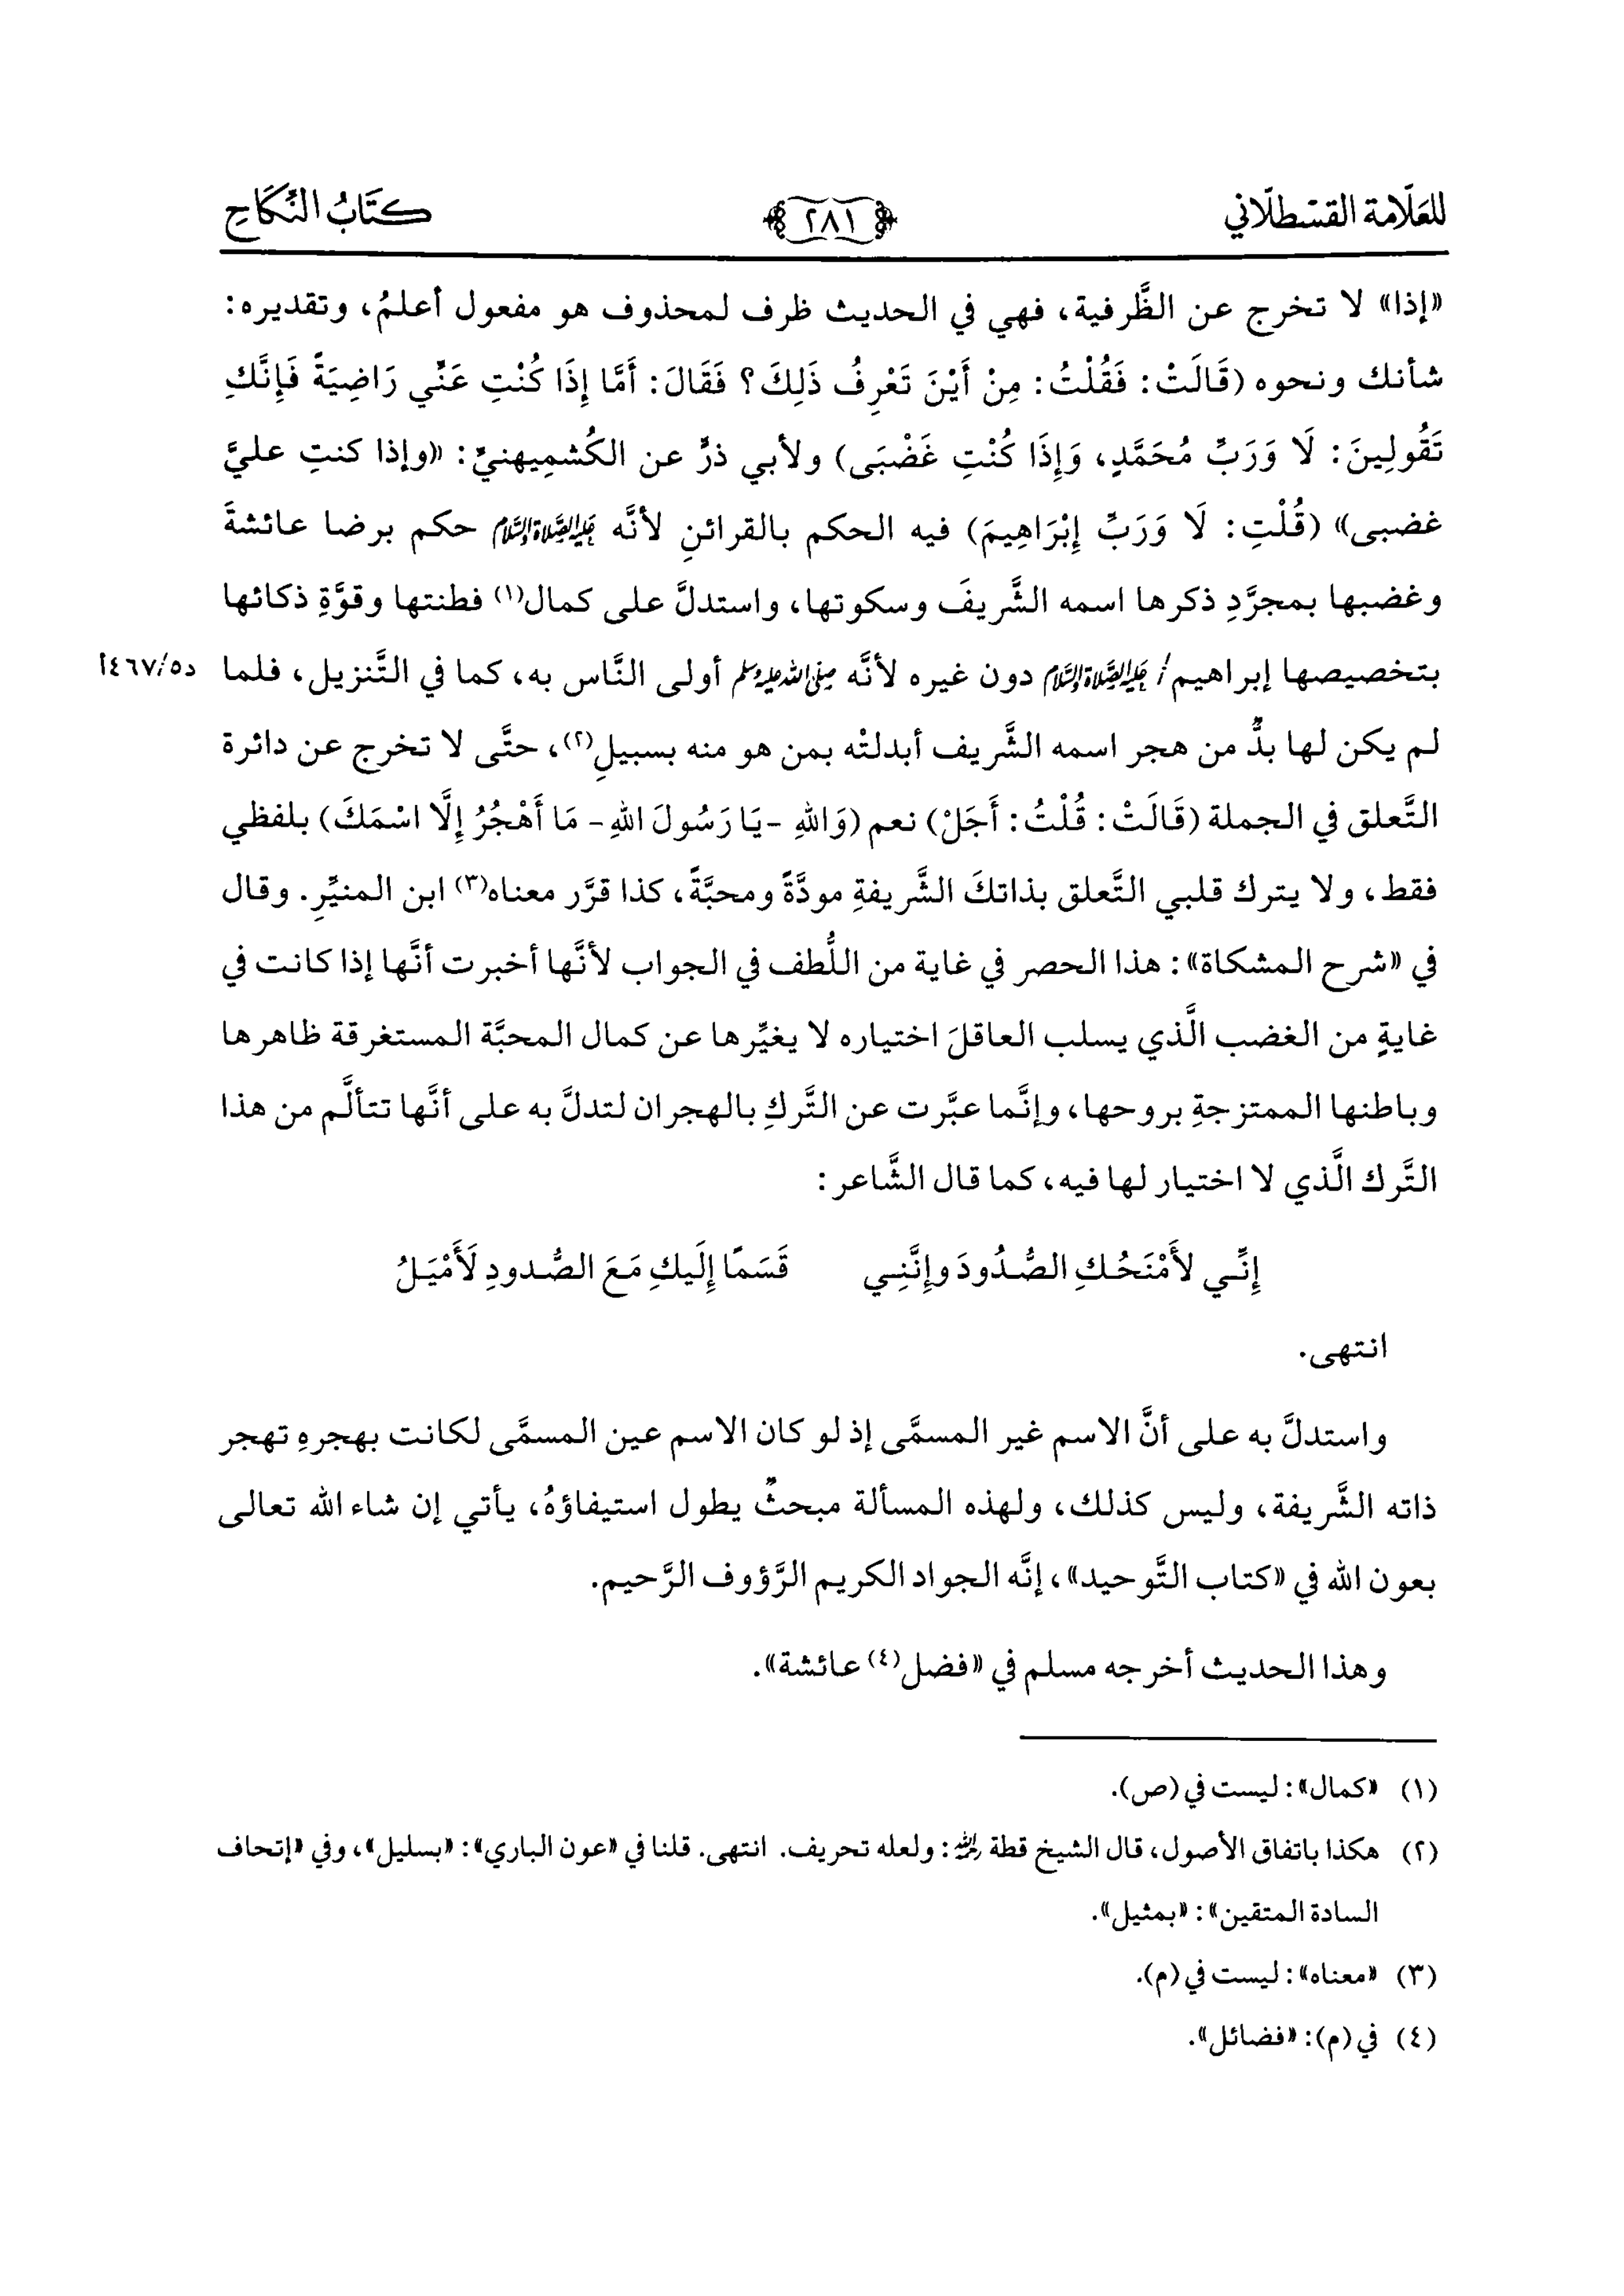 للعلّامة القسطلّاني ٢٨١ كتَابُ النِّكَاحِ
«إذا» لا تخرج عن الظَّرفية، فهي في الحديث ظرف لمحذوف هو مفعول أعلمُ، وتقديره:
شأنك ونحوه (قَالَتْ: فَقُلْتُ: مِنْ أَيْنَ تَعْرِفُ ذَلِكَ؟ فَقَالَ: أَمَّا إِذَا كُنْتِ عَنِّي رَاضِيَةً فَإِنَّكِ
تَقُولِينَ: لَا وَرَبِّ مُحَمَّدٍ، وَإِذَا كُنْتِ غَضْبَى) ولأبي ذرٍّ عن الكُشمِيهنيِّ: «وإذا كنتِ عليَّ
غضبى» (قُلْتِ: لَا وَرَبِّ إِبْرَاهِيمَ) فيه الحكم بالقرائنِ لأنَّه عليه الصلاة والسلام حكم برضا عائشةَ
وغضبها بمجرَّدِ ذكرها اسمه الشَّريفَ وسكوتها، واستدلَّ على كمال(١) فطنتها وقوَّةِ ذكائها
بتخصيصها إبراهيم/ عليه الصلاة والسلام دون غيره لأنَّه صلى الله عليه وسلم أولى النَّاس به، كما في التَّنزيل، فلما د٤٦٧/٥أ
لم يكن لها بدٌّ من هجر اسمه الشَّريف أبدلتْه بمن هو منه بسبيلِ(٢)، حتَّى لا تخرج عن دائرة
التَّعلق في الجملة (قَالَتْ: قُلْتُ: أَجَلْ) نعم (وَاللهِ -يَا رَسُولَ اللهِ- مَا أَهْجُرُ إِلَّا اسْمَكَ) بلفظي
فقط، ولا يترك قلبي التَّعلق بذاتكَ الشَّريفةِ مودَّةً ومحبَّةً، كذا قرَّر معناه(٣) ابن المنيِّرِ. وقال
في «شرح المشكاة»: هذا الحصر في غاية من اللُّطف في الجواب لأنَّها أخبرت أنَّها إذا كانت في
غايةٍ من الغضب الَّذي يسلب العاقلَ اختياره لا يغيِّرها عن كمال المحبَّة المستغرقة ظاهرها
وباطنها الممتزجةِ بروحها، وإنَّما عبَّرت عن التَّركِ بالهجران لتدلَّ به على أنَّها تتألَّم من هذا
التَّرك الَّذي لا اختيار لها فيه، كما قال الشَّاعر:
إِنِّي لأَمْنَحُكِ الصُّدُودَ وإِنَّنِي قَسَمًا إِلَيكِ مَعَ الصُّدودِ لَأَمْيَلُ
انتهى.
واستدلَّ به على أنَّ الاسم غير المسمَّى إذ لو كان الاسم عين المسمَّى لكانت بهجرهِ تهجر
ذاته الشَّريفة، وليس كذلك، ولهذه المسألة مبحثٌ يطول استيفاؤهُ، يأتي إن شاء الله تعالى
بعون الله في «كتاب التَّوحيد»، إنَّه الجواد الكريم الرَّؤوف الرَّحيم.
وهذا الحديث أخرجه مسلم في «فضل(٤) عائشة».
(١) «كمال»: ليست في (ص).
(٢) هكذا باتفاق الأصول، قال الشيخ قطة رحمه الله: ولعله تحريف. انتهى. قلنا في «عون الباري»: «بسليل»، وفي «إتحاف
السادة المتقين»: «بمثيل».
(٣) «معناه»: ليست في (م).
(٤) في (م): «فضائل».